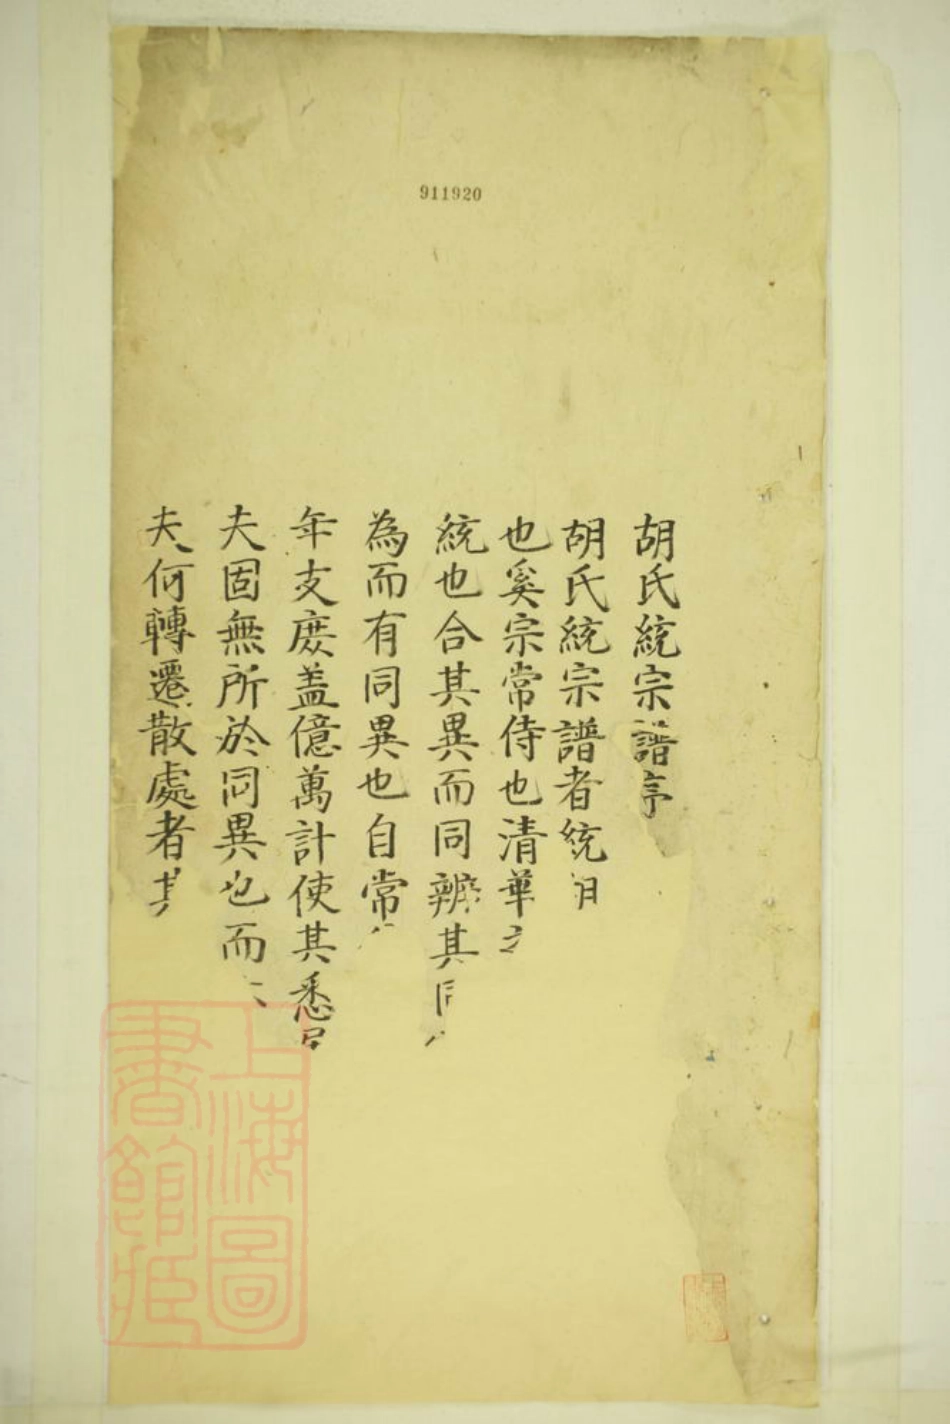 911920
胡氏統宗譜序
胡氏統宗譜者統胡
也奚宗常侍也清華
統也合其異而同辨其同
為而有同異也自常
年支庻盖億萬計使其悉
夫固無所於同異也而
夫何轉遷散處者其
上海圖
書館藏